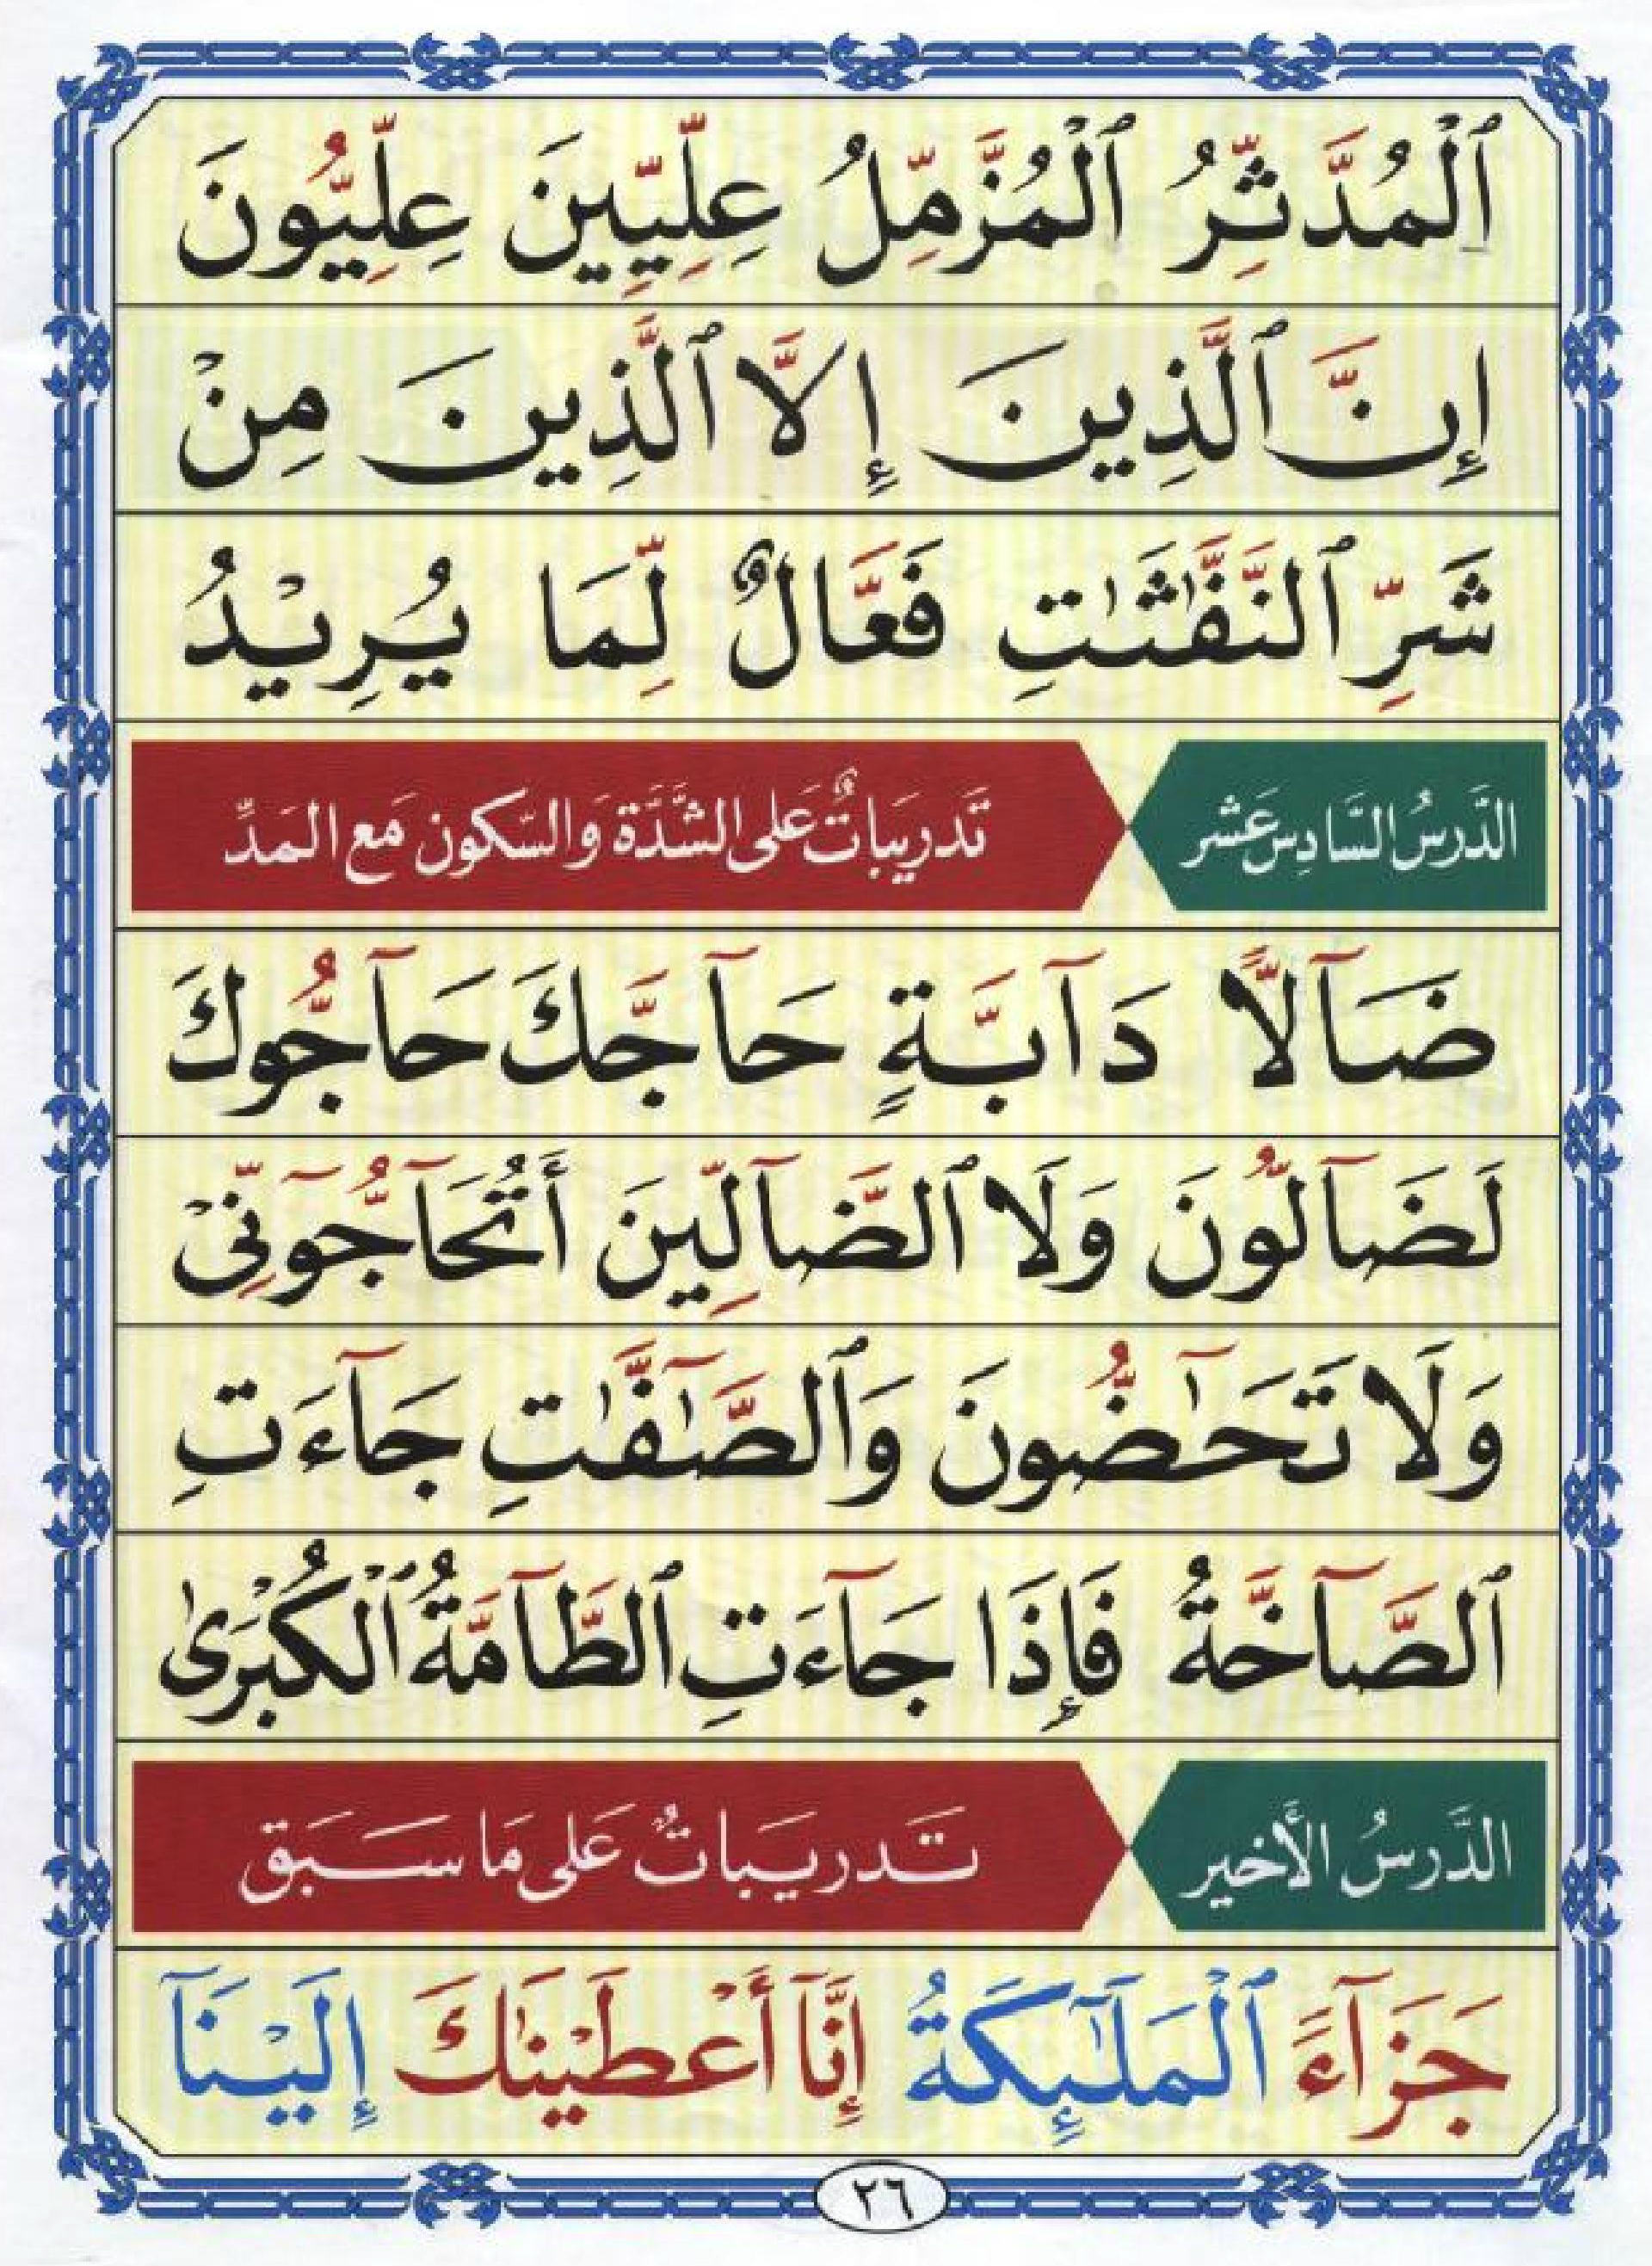 ٱلْمُدَّثِّرُ ٱلْمُزَّمِّلُ عِلِّيِّينَ عِلِّيُّونَ
إِنَّ ٱلَّذِينَ إِلَّا ٱلَّذِينَ مِنْ
شَرِّ ٱلنَّفَّٰثَٰتِ فَعَّالٌ لِّمَا يُرِيْدُ
الدَّرسُ السَّادِس عَشر تَدريَباتٌ عَلى الشَّدَّة وَالسّكون مَع المَدِّ
ضَآلًّا دَآبَّةٍ حَآجَّكَ حَآجُّوكَ
لَضَآلُّونَ وَلَا ٱلضَّآلِّينَ أَتُحَآجُّوٓنِّيْ
وَلَا تَحَٰٓضُّونَ وَٱلصَّٰٓفَّٰتِ جَآءَتِ
ٱلصَّآخَّةُ فَإِذَا جَآءَتِ ٱلطَّآمَّةُ ٱلْكُبْرَىٰ
الدَّرسُ الأَخير تَدريَباتٌ عَلى مَا سَبَق
جَزَآءً ٱلْمَلَٰٓئِكَةُ إِنَّآ أَعْطَيْنَٰكَ إِلَيْنَآ
٢٦